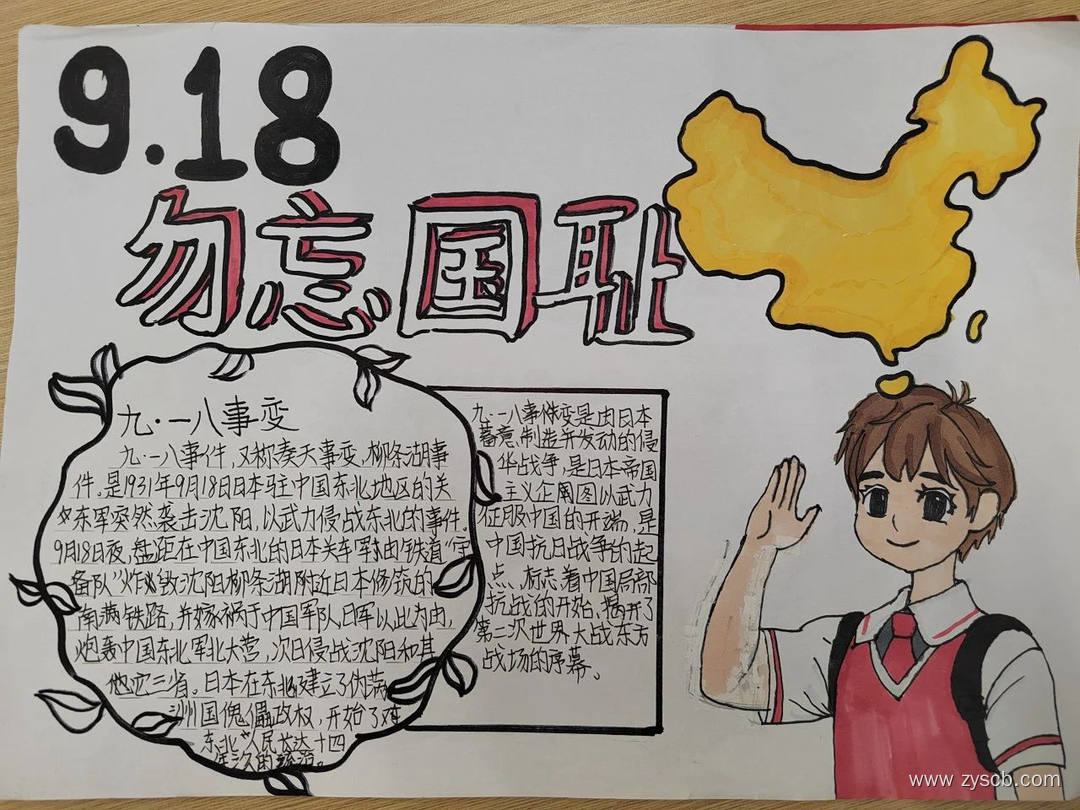 9.18
勿忘国耻
九·一八事变
九·一八事件,又称奉天事变,柳条湖事
件。是1931年9月18日日本驻中国东北地区的关
东军突然袭击沈阳,以武力侵战东北的事件。
9月18日夜,盘距在中国东北的日本关车军由铁道"守
备队"炸毁沈阳柳条湖附近日本修筑的
南满铁路,并嫁祸于中国军队日军以此为由,
炮轰中国东北军北大营,次日侵战沈阳和其
他 三省。日本在东北建立了伪满
洲国傀儡政权,开始了对
东北人民长达十四
年 的
九·一八事件变是由日本
蓄意制造并发动的侵
华战争,是日本帝国
主义正 图以武力
征服中国的开端,是
中国抗日战争的起
点,标志着中国局部
抗战的开始,揭开了
第二次世界大战东方
战场的序幕。
www.zyscb.com